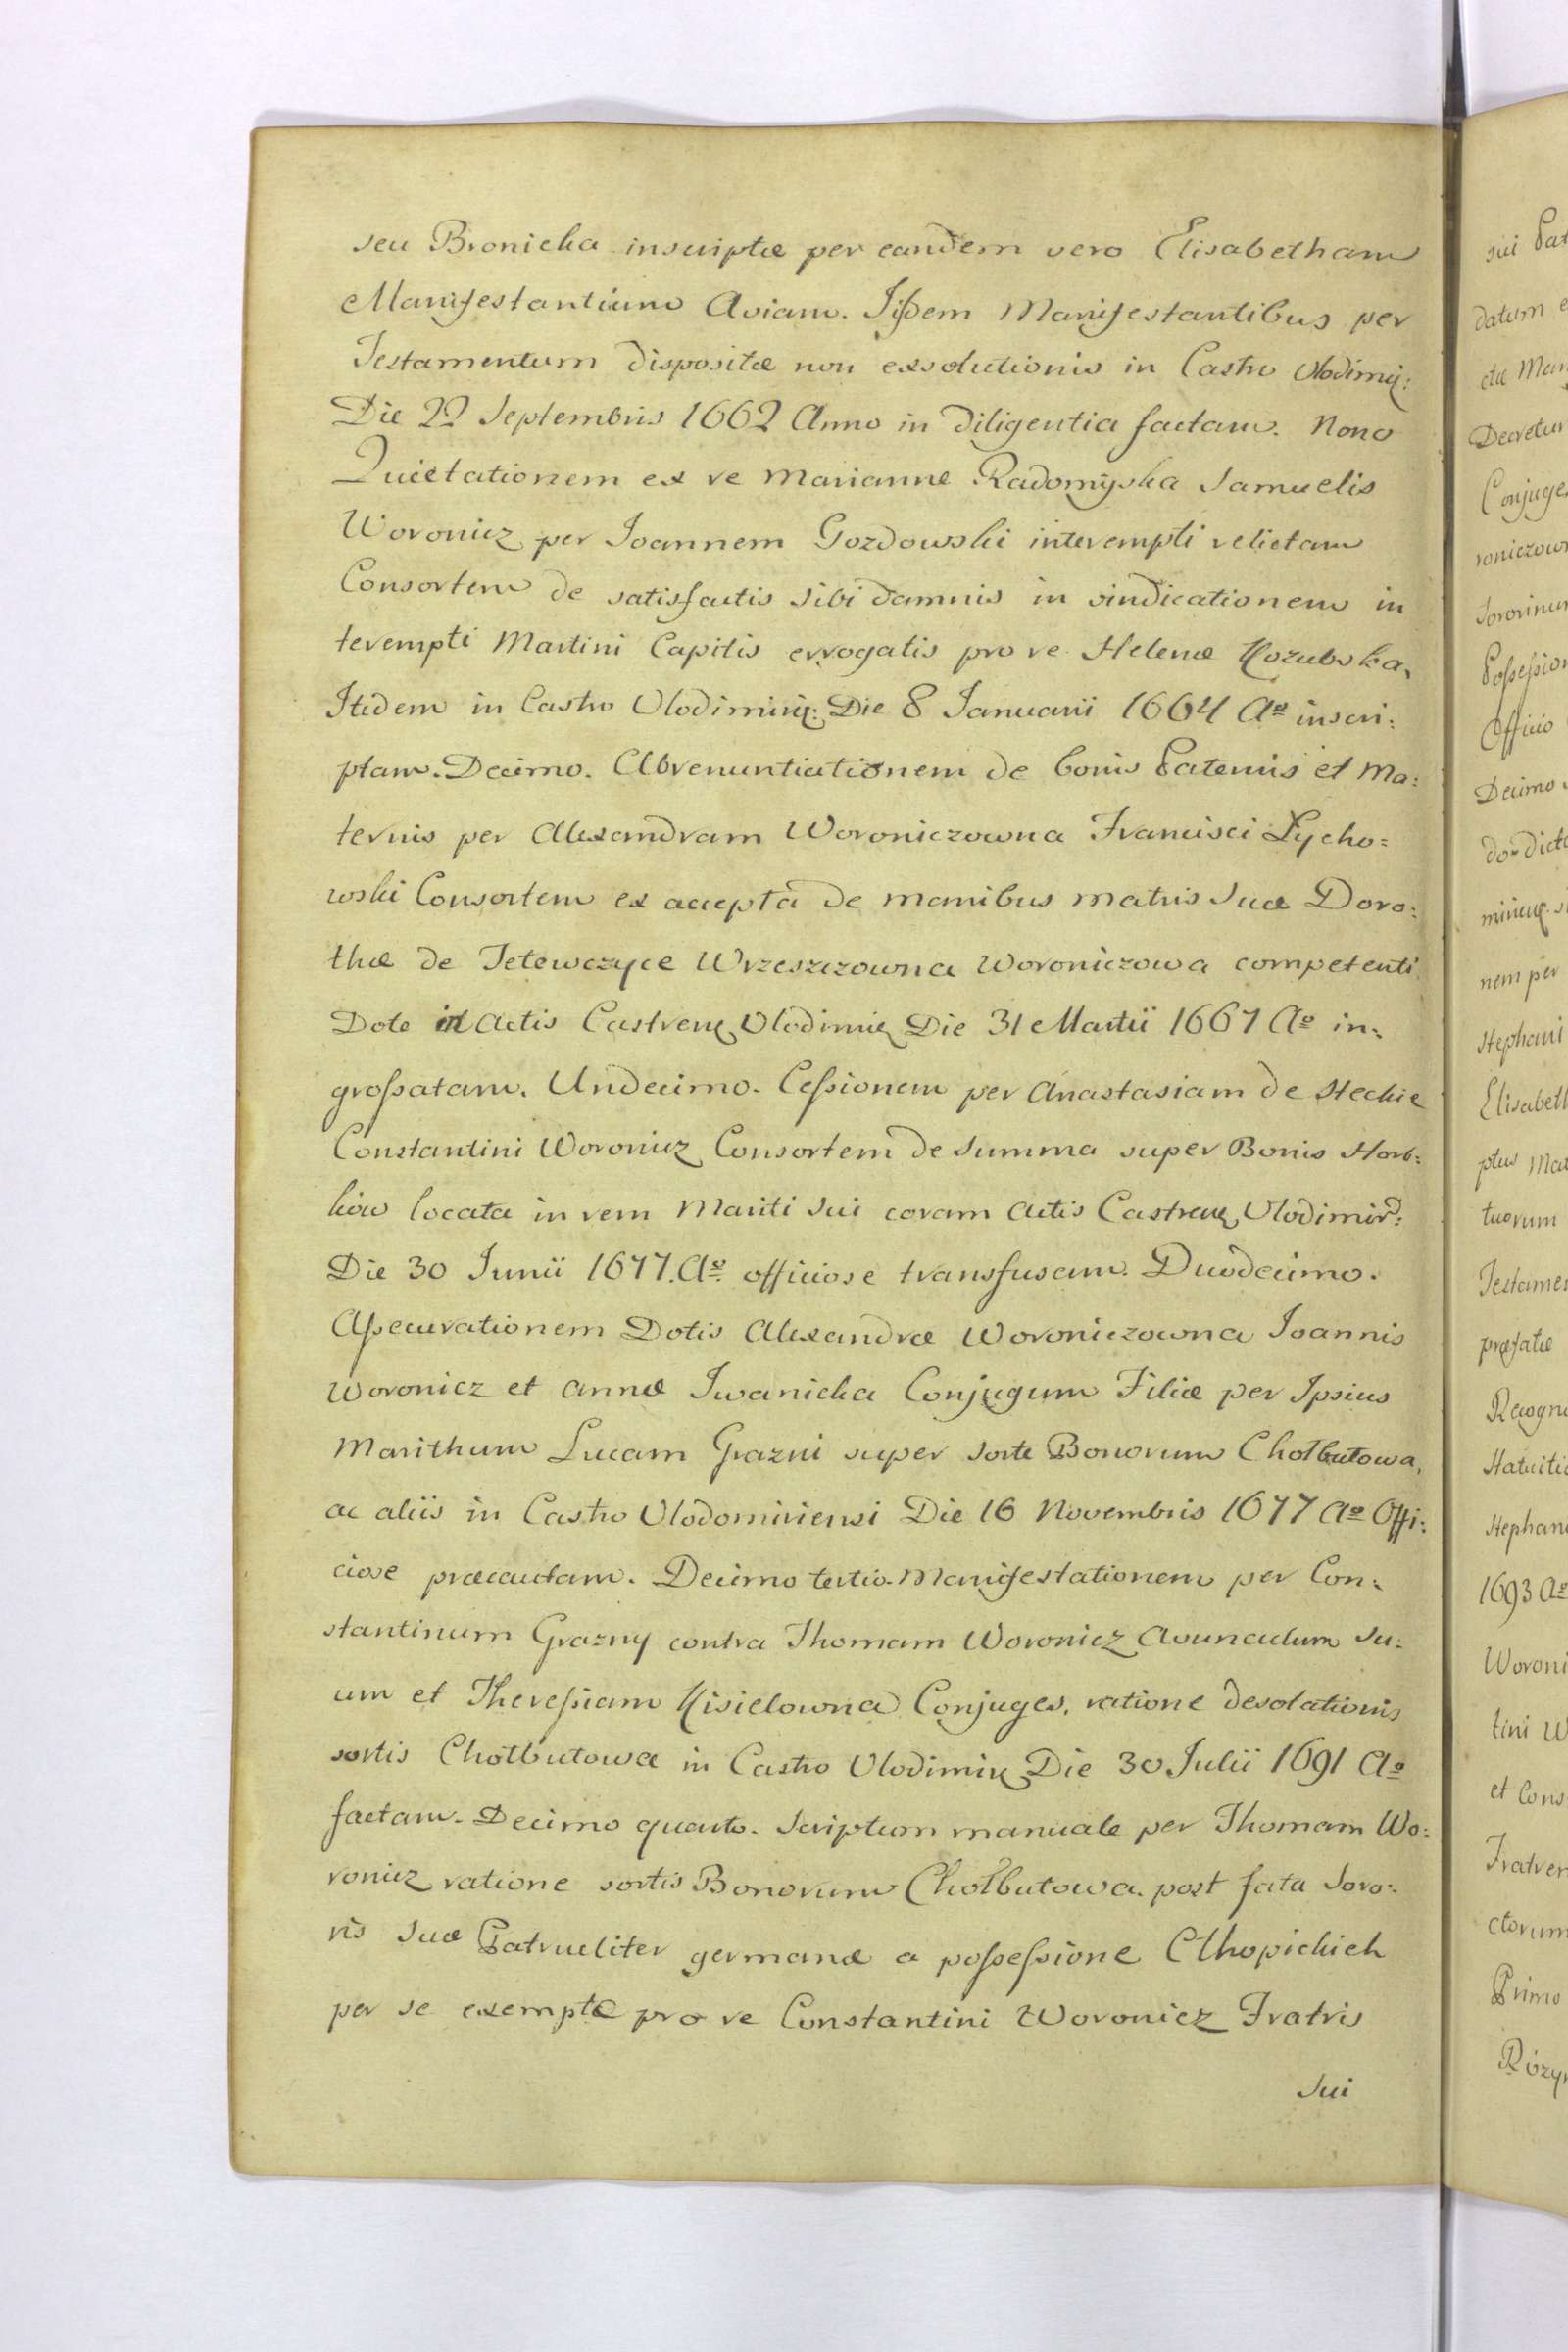 seu Bronicka inscriptæ per eandem vero Elisabetham
Manifestantium Aviam. Iisdem Manifestantibus per
Testamentum dispositæ non exsolutionis in Castro Vlodimir:
Die 22 Septembris 1662 Anno in diligentia factam. Nono
Quietationem ex re Mariannæ Radomyska Samuelis
Woronicz per Joannem Gozdowski interempti relictam
Consortem de satisfactis sibi damnis in vindicationem in
terempti Martini Capitis errogatis pro re Helenæ Kozubska,
Itidem in Castro Vlodimirię: Die 8 Januarii 1664 Aº inscri:
ptam. Decimo. Abrenuntiationem de bonis Paternis et Ma:
ternis per Alexandram Woroniczowna Francisci Lycho=
wski Consortem ex accepta de manibus matris Suæ Doro:
theæ de Tetewczyce Wrzeszczowna Woroniczowa competenti
Dote in Actis Castrenę Vlodimirię Die 31 Martii 1667 Aº in:
grossatam. Undecimo. Cessionem per Anastasiam de Steckie
Constantini Woronicz Consortem de Summa super Bonis Horb:
kow locata in rem Mariti Sui coram Actis Castrenę Vlodimir:
Die 30 Junii 1677. Aº officiose transfusam. Duodecimo.
Assecurationem Dotis Alexandræ Woroniczowna Joannis
Woronicz et Annæ Iwanicka Conjugum Filiæ per Ipsius
Marithum Lucam Grazni super sorte Bonorum Chotbutowa,
ac aliis in Castro Vlodomiriensi Die 16 Novembris 1677 Aº Offi:
ciose præcautam. Decimo tertio. Manifestationem per Con:
stantinum Grazny contra Thomam Woronicz Avunculum Su:
um et Theressiam Kisielowna Conjuges, ratione desolationis
sortis Chotbutowa in Castro Vlodimirię Die 30 Julii 1691 Aº
factam. Decimo quarto. Scriptum manuale per Thomam Wo:
ronicz ratione sortis Bonorum Chotbutowa. post fata Soro:
ris Suæ Patrueliter germanæ a possessione Cthopickich
per se exemptæ pro re Constantini Woronicz Fratris
Sui
sui
datum
Decretum
Stephani
tuorum
præfatæ
1693 Aº
tini
et Cons
ctorum
Primo